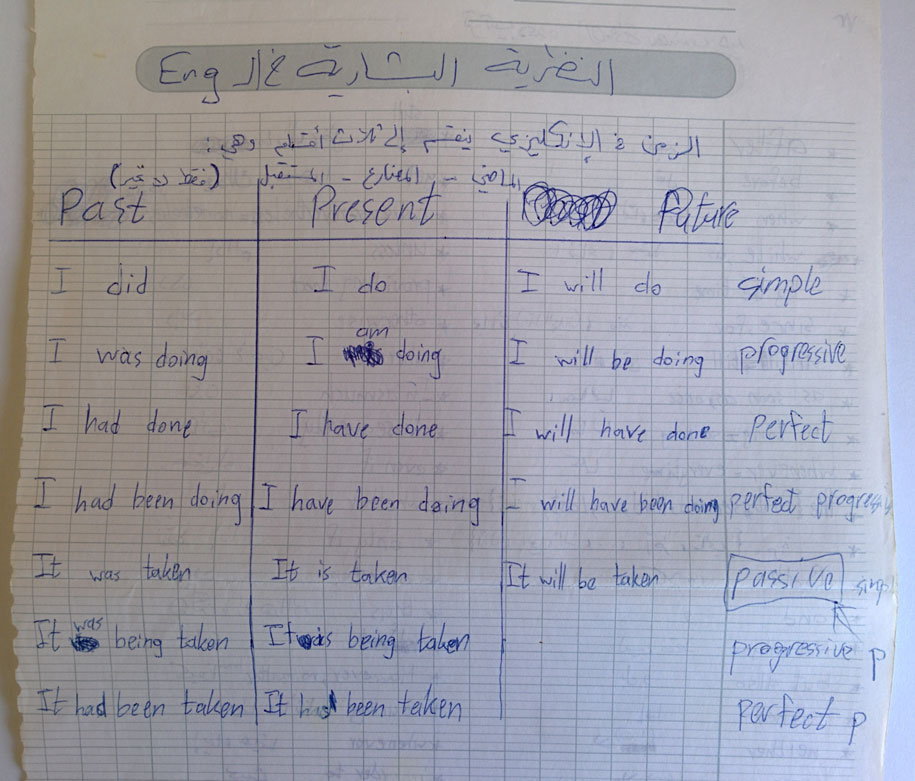 النظرية البشارية في ال Eng
الزمن في الإنكليزي يقسم إلى ثلاث أقسام وهي:
الماضي - المضارع - المستقبل (فقط
Past Present Future
I did I do I will do simple
I was doing I am doing I will be doing progressive
I had done I have done I will have done perfect
I had been doing I have been doing I will have been doing perfect progressiv
It was taken It is taken It will be taken passive simpl
It was being taken It is being taken progressive p
It had been taken It has been taken perfect p